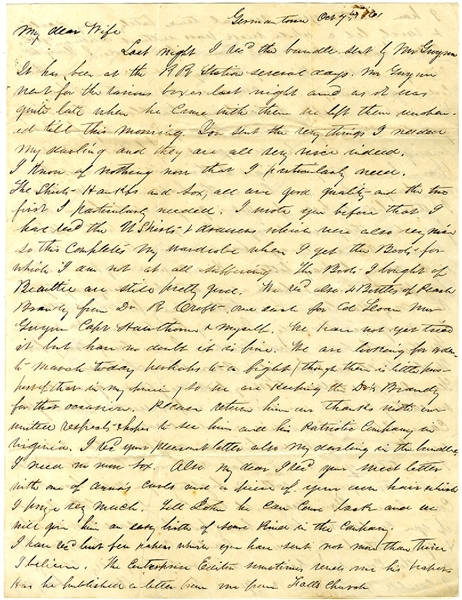 Germantown Oct 7th 1861
My dear Wife
Last night I recd the bundle sent by Mr Gwynn
It has been at the R R Station several days. Mr Gwynn
went for the various boxes last night and as it was
quite late when he came with them he left them unopen-
ed till this morning. You sent the very things I needed
my darling and they are all very nice indeed.
I know of nothing now that I particularly need.
The Shirts - Hankfs and Sox, all are good quality - and the two
first I particularly needed. I wrote you before that I
had recd the U Shirts & drawers which were also very nice
so this completes my wardrobe when I get the Boots - for
which I am not at all suffering. The Boots I bought of
Beattie are still pretty good. We recd also 4 Bottles of Peach
Brandy from Dr R Croft - one each for Col Sloan Mr
Gwynn Capt Hawthorne & myself. We have not yet tried
it but have no doubt it is fine. We are looking for orders
to march today perhaps to a fight (though there is little pros-
pect of that in my mind) so we are keeping the Drs Brandy
for that occasion. Please return him our thanks with our
united respects & hopes to see him and his Patriotic Company in
Virginia. I recd your pleasant letter also my darling in the bundle.
I need no more sox. Also my dear I recd your sweet letter
with one of Anna's curls and a piece of your own hair which
I prize very much. Tell John he can come back and we
will give him an easy birth of some kind in the Company.
I have recd but few papers which you have sent not more than three
I believe. The Enterprise Editor sometimes sends me his
Has he published a letter from me from Falls Church